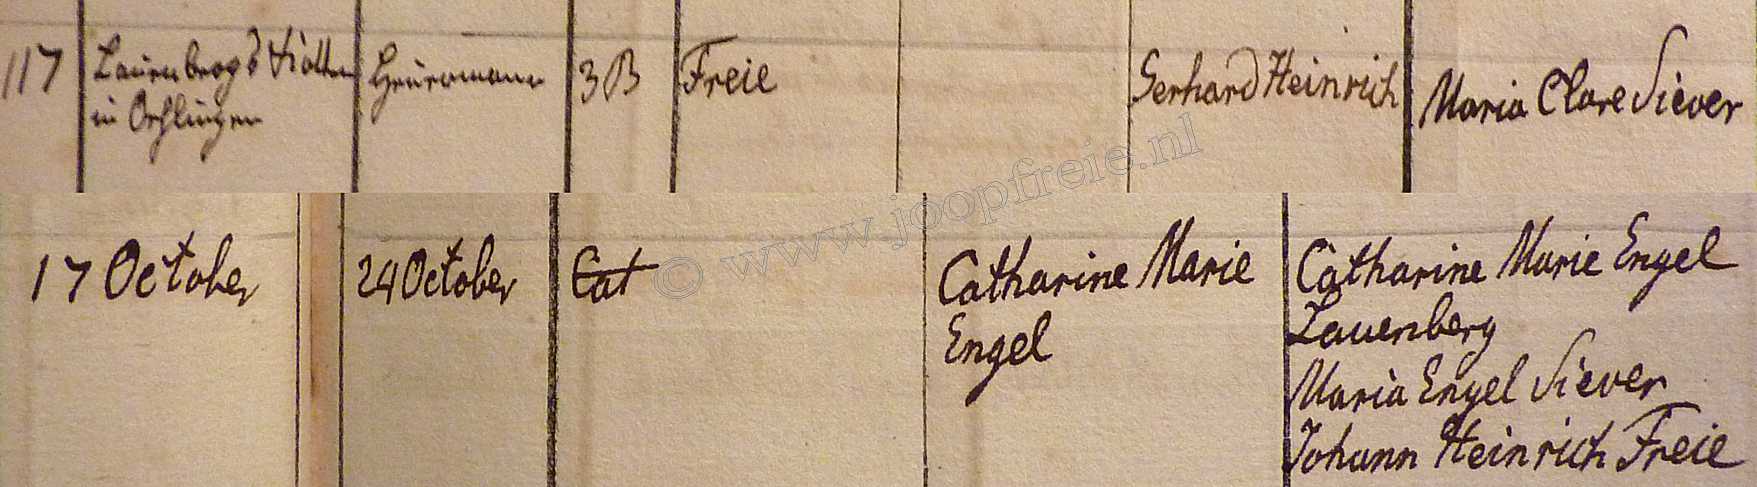 117
Lauenbergs Kotten
in Oehlingen
Heuermann
3 B
Freie
Gerhard Heinrich
Maria Clare Siever
17 October
24 October
Cat
Catharine Marie
Engel
Catharine Marie Engel
Lauenberg
Maria Engel Siever
Johann Heinrich Freie
© www.joopfreie.nl